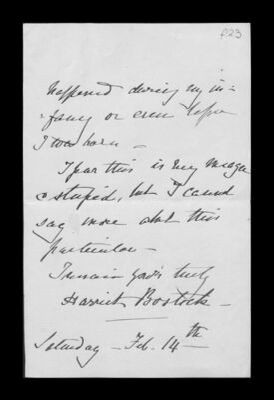 f.23
happened during my in-
-fancy or even before
I was born -
I fear this is very meagre
& stupid, but I cannot
say more abt this
particular -
I remain yours truly
Harriet Bostock -
Saturday - Feb. 14th